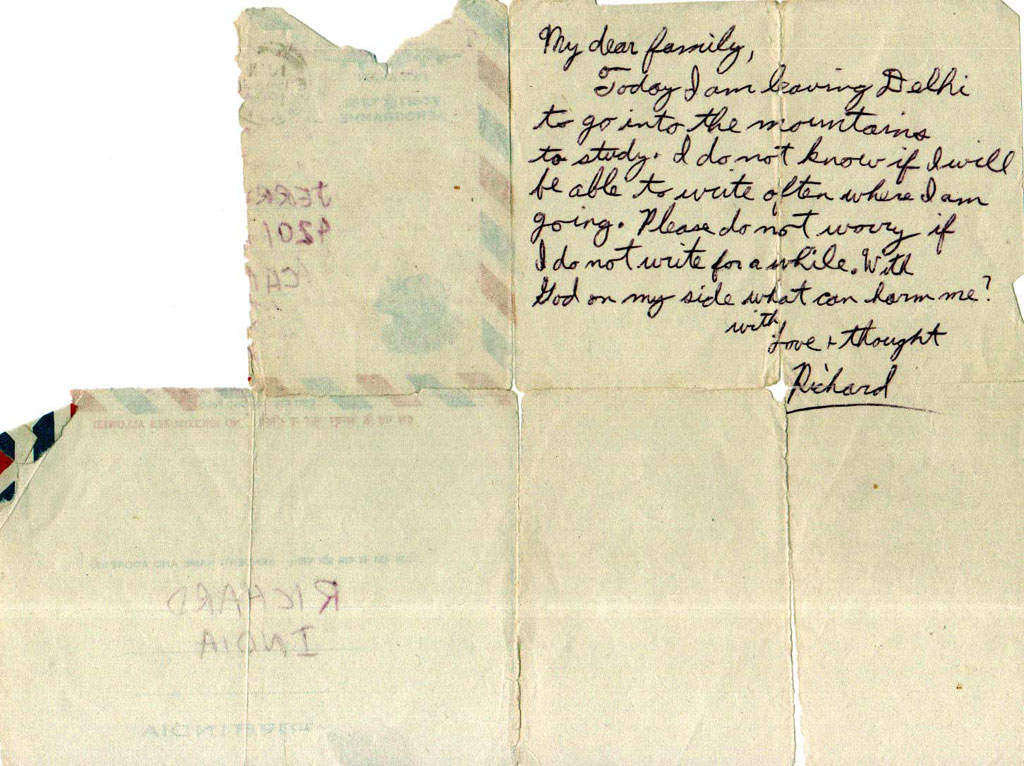 My dear family,
Today I am leaving Delhi
to go into the mountains
to study. I do not know if I will
be able to write often where I am
going. Please do not worry if
I do not write for a while. With
God on my side what can harm me?
with
Love + thought
Richard
AEROGRAMME
JERR
4201
CA
RICHARD
INDIA
INDIA